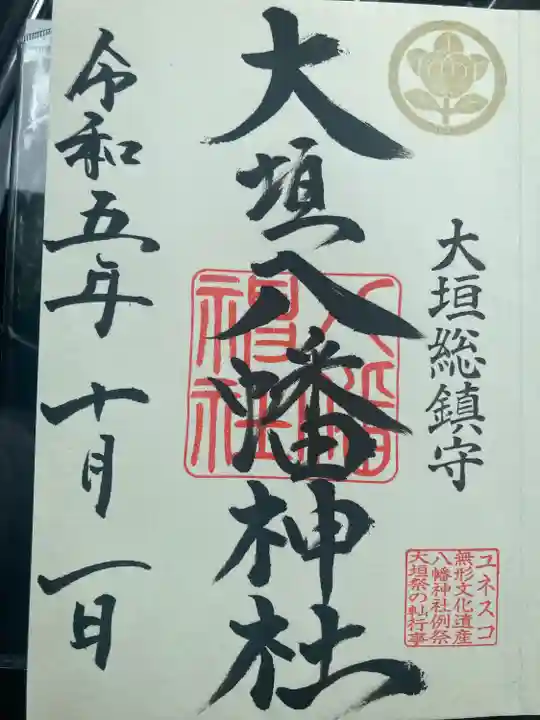 大垣総鎮守
ユネスコ
無形文化遺産
八幡神社例祭
大垣祭の軕行事
大垣八幡神社
八幡
神社
令和五年十月一日